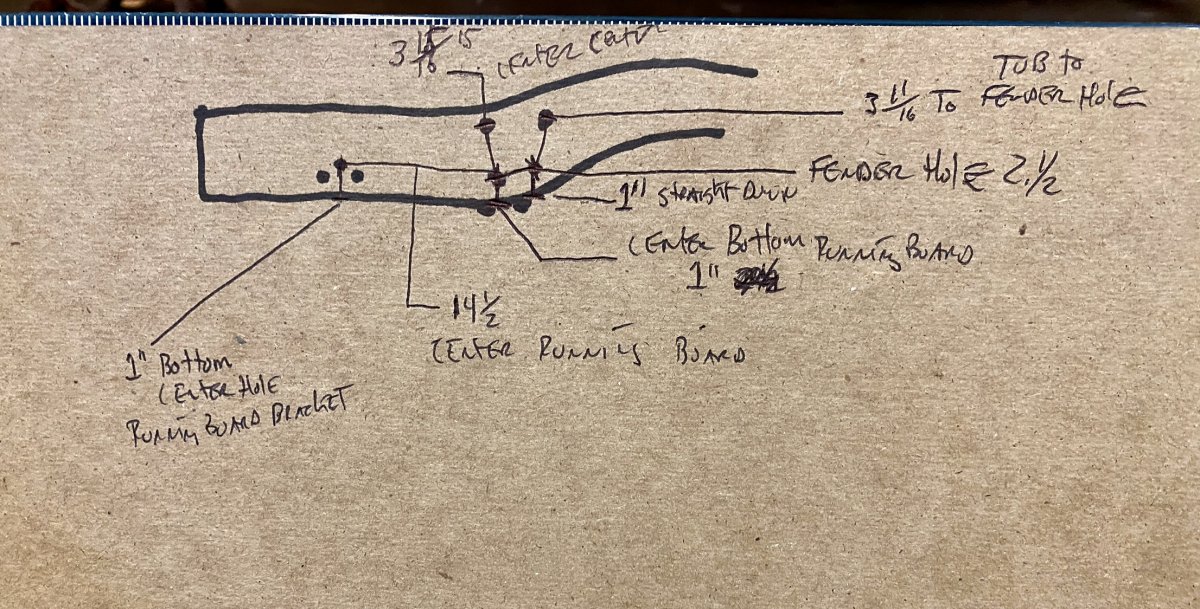 3 15/16 15 CENTER CENTER
TUB to
3 11/16 To FENDER HolE
FENDER HolE 2.1/2
1" STRAIGHT DOWN
CENTER Bottom RUNNING BOARD
1"
14 1/2
CENTER RUNNING BOARD
1" Bottom
CENTER HolE
RUNNING BOARD BRACKET